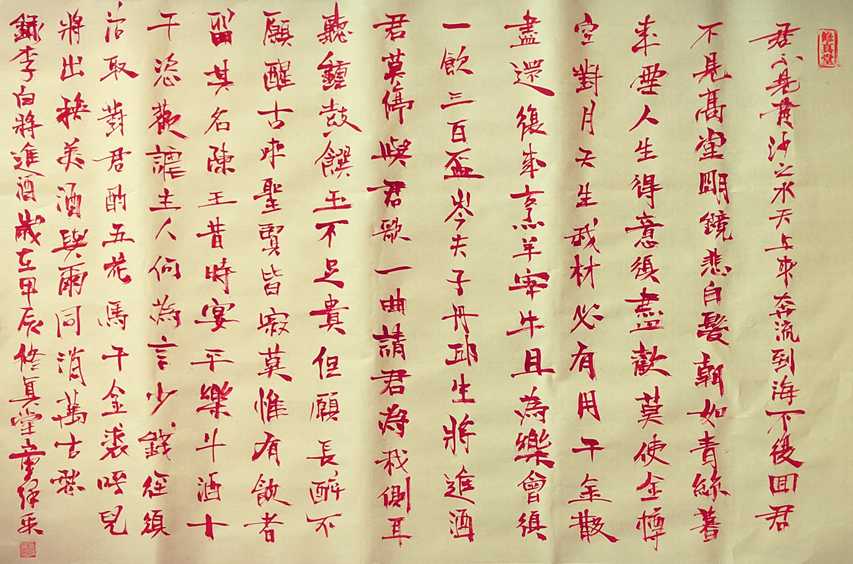 修真堂
君不見黃沙之水天上來奔流到海不復回君
不見高堂明鏡悲白髮朝如青絲暮
成雪人生得意須盡歡莫使金樽
空對月天生我材必有用千金散
盡還復來烹羊宰牛且為樂會須
一飲三百盃岑夫子丹邱生將進酒
君莫停與君歌一曲請君為我側耳
聽鐘鼓饌玉不足貴但願長醉不
願醒古來聖賢皆寂莫惟有飲者
留其名陳王昔時宴平樂斗酒十
千恣歡謔主人何為言少錢徑須
沽取對君酌五花馬千金裘呼兒
將出換美酒與爾同消萬古愁
錄李白將進酒歲在甲辰修真堂童